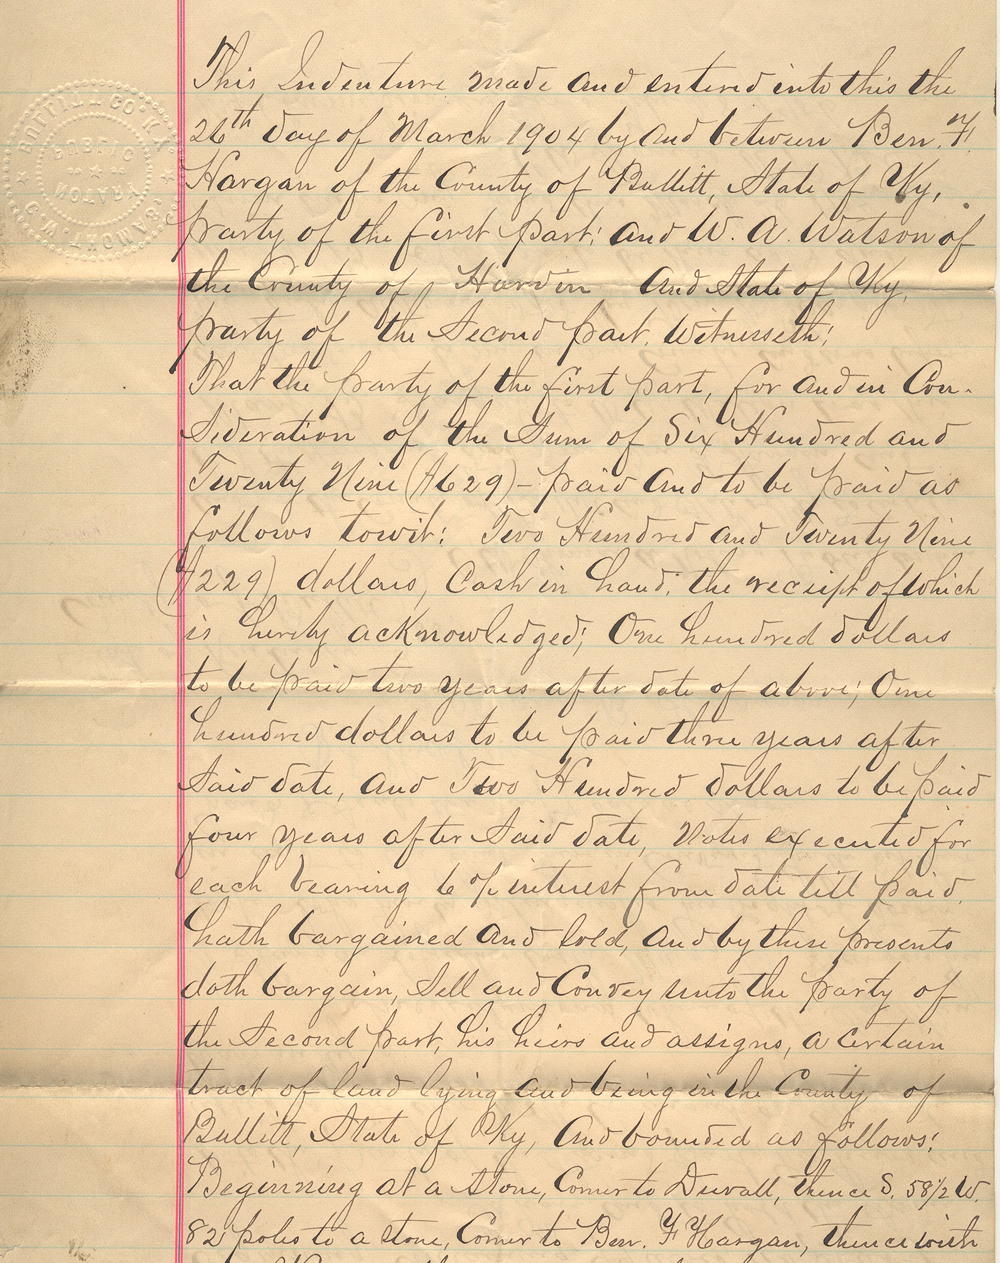 This Indenture made and entered into this the
26th day of March 1904 by and between Ben. F.
Hargan of the County of Bullitt, State of Ky,
party of the first part; and W. A. Watson of
the County of Hardin and State of Ky,
party of the Second part. Witnesseth:
That the party of the first part, for and in Con-
sideration of the Sum of Six Hundred and
Twenty Nine ($629) - paid and to be paid as
follows towit: Two Hundred and Twenty Nine
($229) dollars, Cash in hand, the receipt of which
is hereby acknowledged; One hundred dollars
to be paid two years after date of above; One
hundred dollars to be paid three years after
Said date, and Two Hundred dollars to be paid
four years after Said date, Notes executed for
each bearing 6 % interest from date till paid,
hath bargained and Sold, and by these presents
doth bargain, Sell and Convey unto the party of
the Second part, his heirs and assigns, a certain
tract of land lying and being in the County of
Bullitt, State of Ky, and bounded as follows:
Beginning at a Stone, Corner to Duvall, thence S. 58 1/2 W.
82 poles to a stone, Corner to Ben. F Hargan, thence with
NOTARY PUBLIC
BULLITT CO. KY.